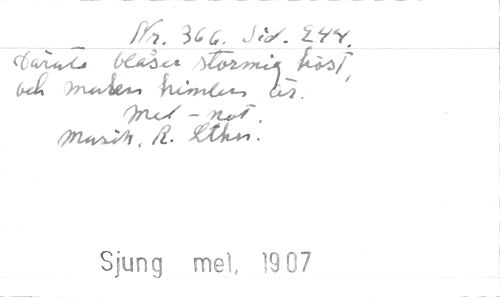 Nr. 366. Sid. 244.
blåser stormig höst,
och marken himlen är.
Mel - not.
Musik. R.
Sjung mel, 1907